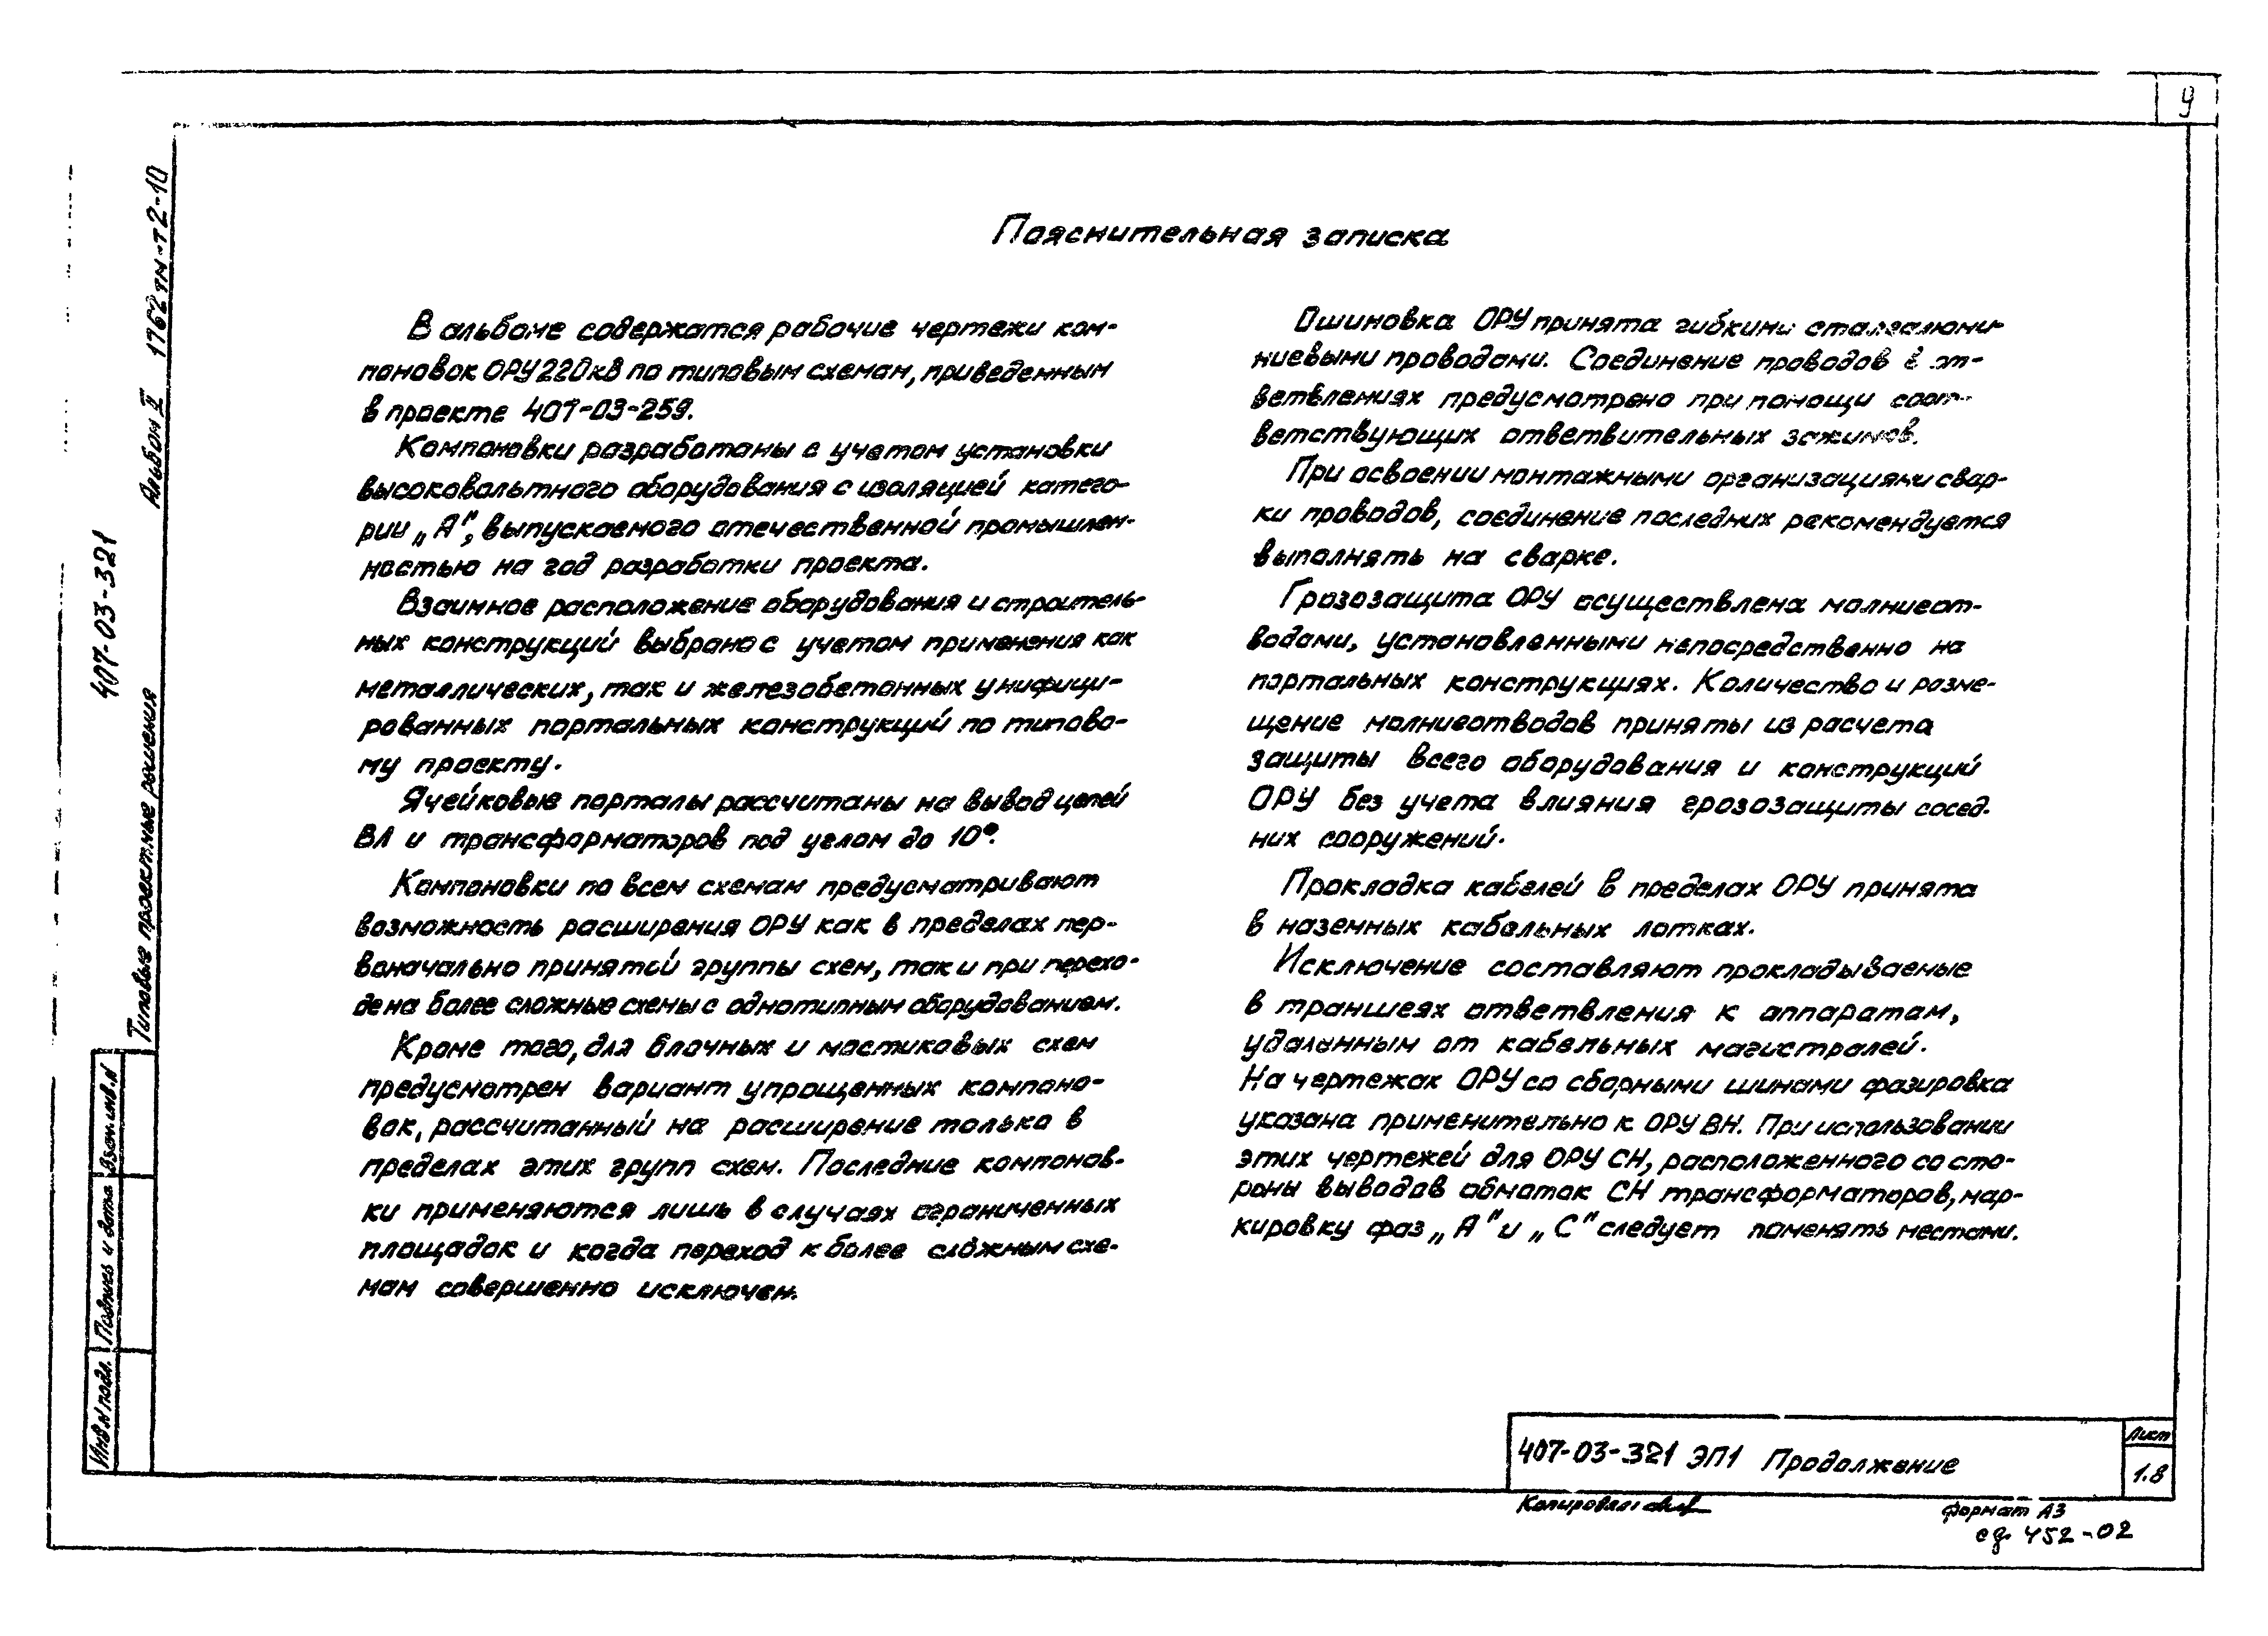 9
Пояснительная записка
В альбоме содержатся рабочие чертежи ком-
поновок ОРУ 220 кВ по типовым схемам, приведенным
в проекте 407-03-259.
Компоновки разработаны с учетом установки
высоковольтного оборудования с изоляцией катего-
рии „А", выпускаемого отечественной промышлен-
ностью на год разработки проекта.
Взаимное расположение оборудования и строитель-
ных конструкций выбрано с учетом применения как
металлических, так и железобетонных унифици-
рованных портальных конструкций по типово-
му проекту.
Ячейковые порталы рассчитаны на вывод цепей
ВЛ и трансформаторов под углом до 10°.
Компоновки по всем схемам предусматривают
возможность расширения ОРУ как в пределах пер-
воначально принятой группы схем, так и при перехо-
де на более сложные схемы с однотипным оборудованием.
Кроме того, для блочных и мостиковых схем
предусмотрен вариант упрощенных компоно-
вок, рассчитанный на расширение только в
пределах этих групп схем. Последние компонов-
ки применяются лишь в случаях ограниченных
площадок и когда переход к более сложным схе-
мам совершенно исключен.
Ошиновка ОРУ принята гибкими сталеалюми-
ниевыми проводами. Соединение проводов в от-
ветвлениях предусмотрено при помощи соот-
ветствующих ответвительных зажимов.
При освоении монтажными организациями свар-
ки проводов, соединение последних рекомендуется
выполнять на сварке.
Грозозащита ОРУ осуществлена молниеот-
водами, установленными непосредственно на
портальных конструкциях. Количество и разме-
щение молниеотводов приняты из расчета
защиты всего оборудования и конструкций
ОРУ без учета влияния грозозащиты сосед-
них сооружений.
Прокладка кабелей в пределах ОРУ принята
в наземных кабельных лотках.
Исключение составляют прокладываемые
в траншеях ответвления к аппаратам,
удаленным от кабельных магистралей.
На чертежах ОРУ со сборными шинами фазировка
указана применительно к ОРУ ВН. При использовании
этих чертежей для ОРУ СН, расположенного со сто-
роны выводов обмоток СН трансформаторов, мар-
кировку фаз „А" и „С" следует поменять местами.
407-03-321
Типовые проектные решения Альбом II 1762тм-т2-10
Взам.инв.N
Подпись и дата
Инв.N подл.
407-03-321 ЭП1 Продолжение
Лист
1.8
Копировал:
формат А3
сф 452-02